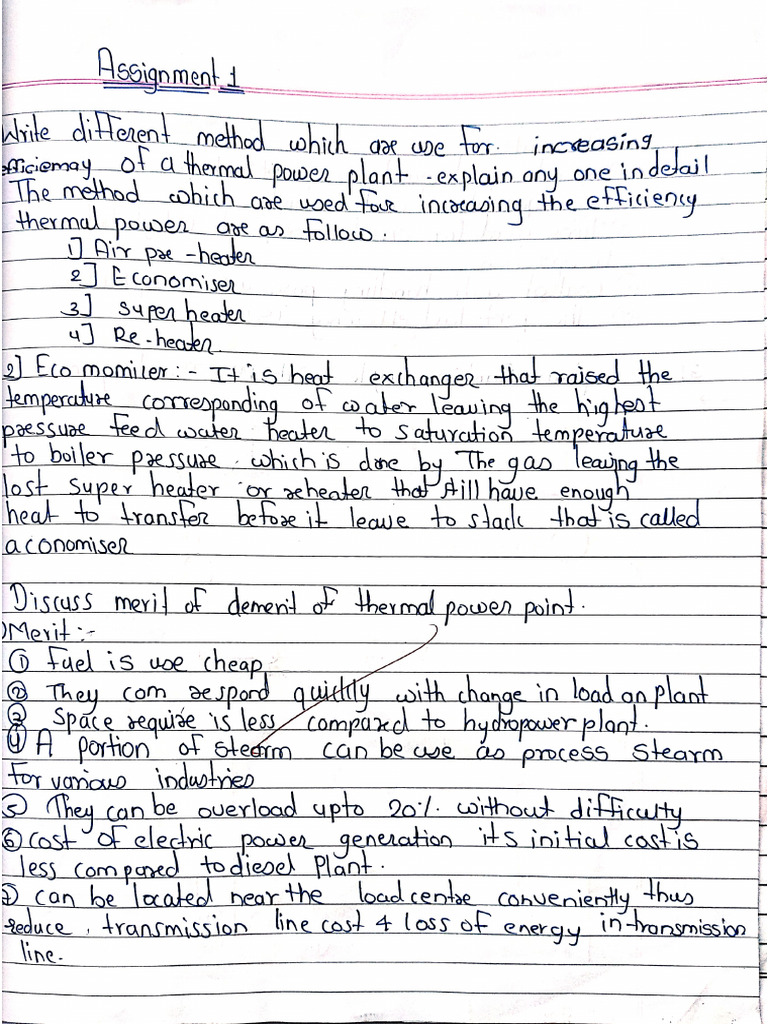 Assignment 1
Write different method which are use for increasing
efficiemay of a thermal power plant - explain any one in detail
The method which are used for increasing the efficiency
thermal power are as follow.
1] Air pre-heater
2] Economiser
3] Super heater
4] Re-heater
2] Eco momicer :- It is heat exchanger that raised the
temperature corresponding of water leaving the highest
pressure feed water heater to saturation temperature
to boiler pressure. which is done by The gas leaving the
lost super heater or reheater that still have enough
heat to transfer before it leave to stack that is called
aconomiser
Discuss merit of demerit of thermal power point.
) Merit :-
① Fuel is use cheap
② They com respond quicklly with change in load on plant
③ Space require is less compared to hydropower plant.
④ A portion of stearm can be use as process stearm
for various industries
⑤ They can be overload upto 20%. without difficulty
⑥ cost of electric power generation its initial cost is
less compared to diesel Plant.
⑦ can be located near the load centre conveniently thus
reduce, transmission line cost & loss of energy in transmission
line.